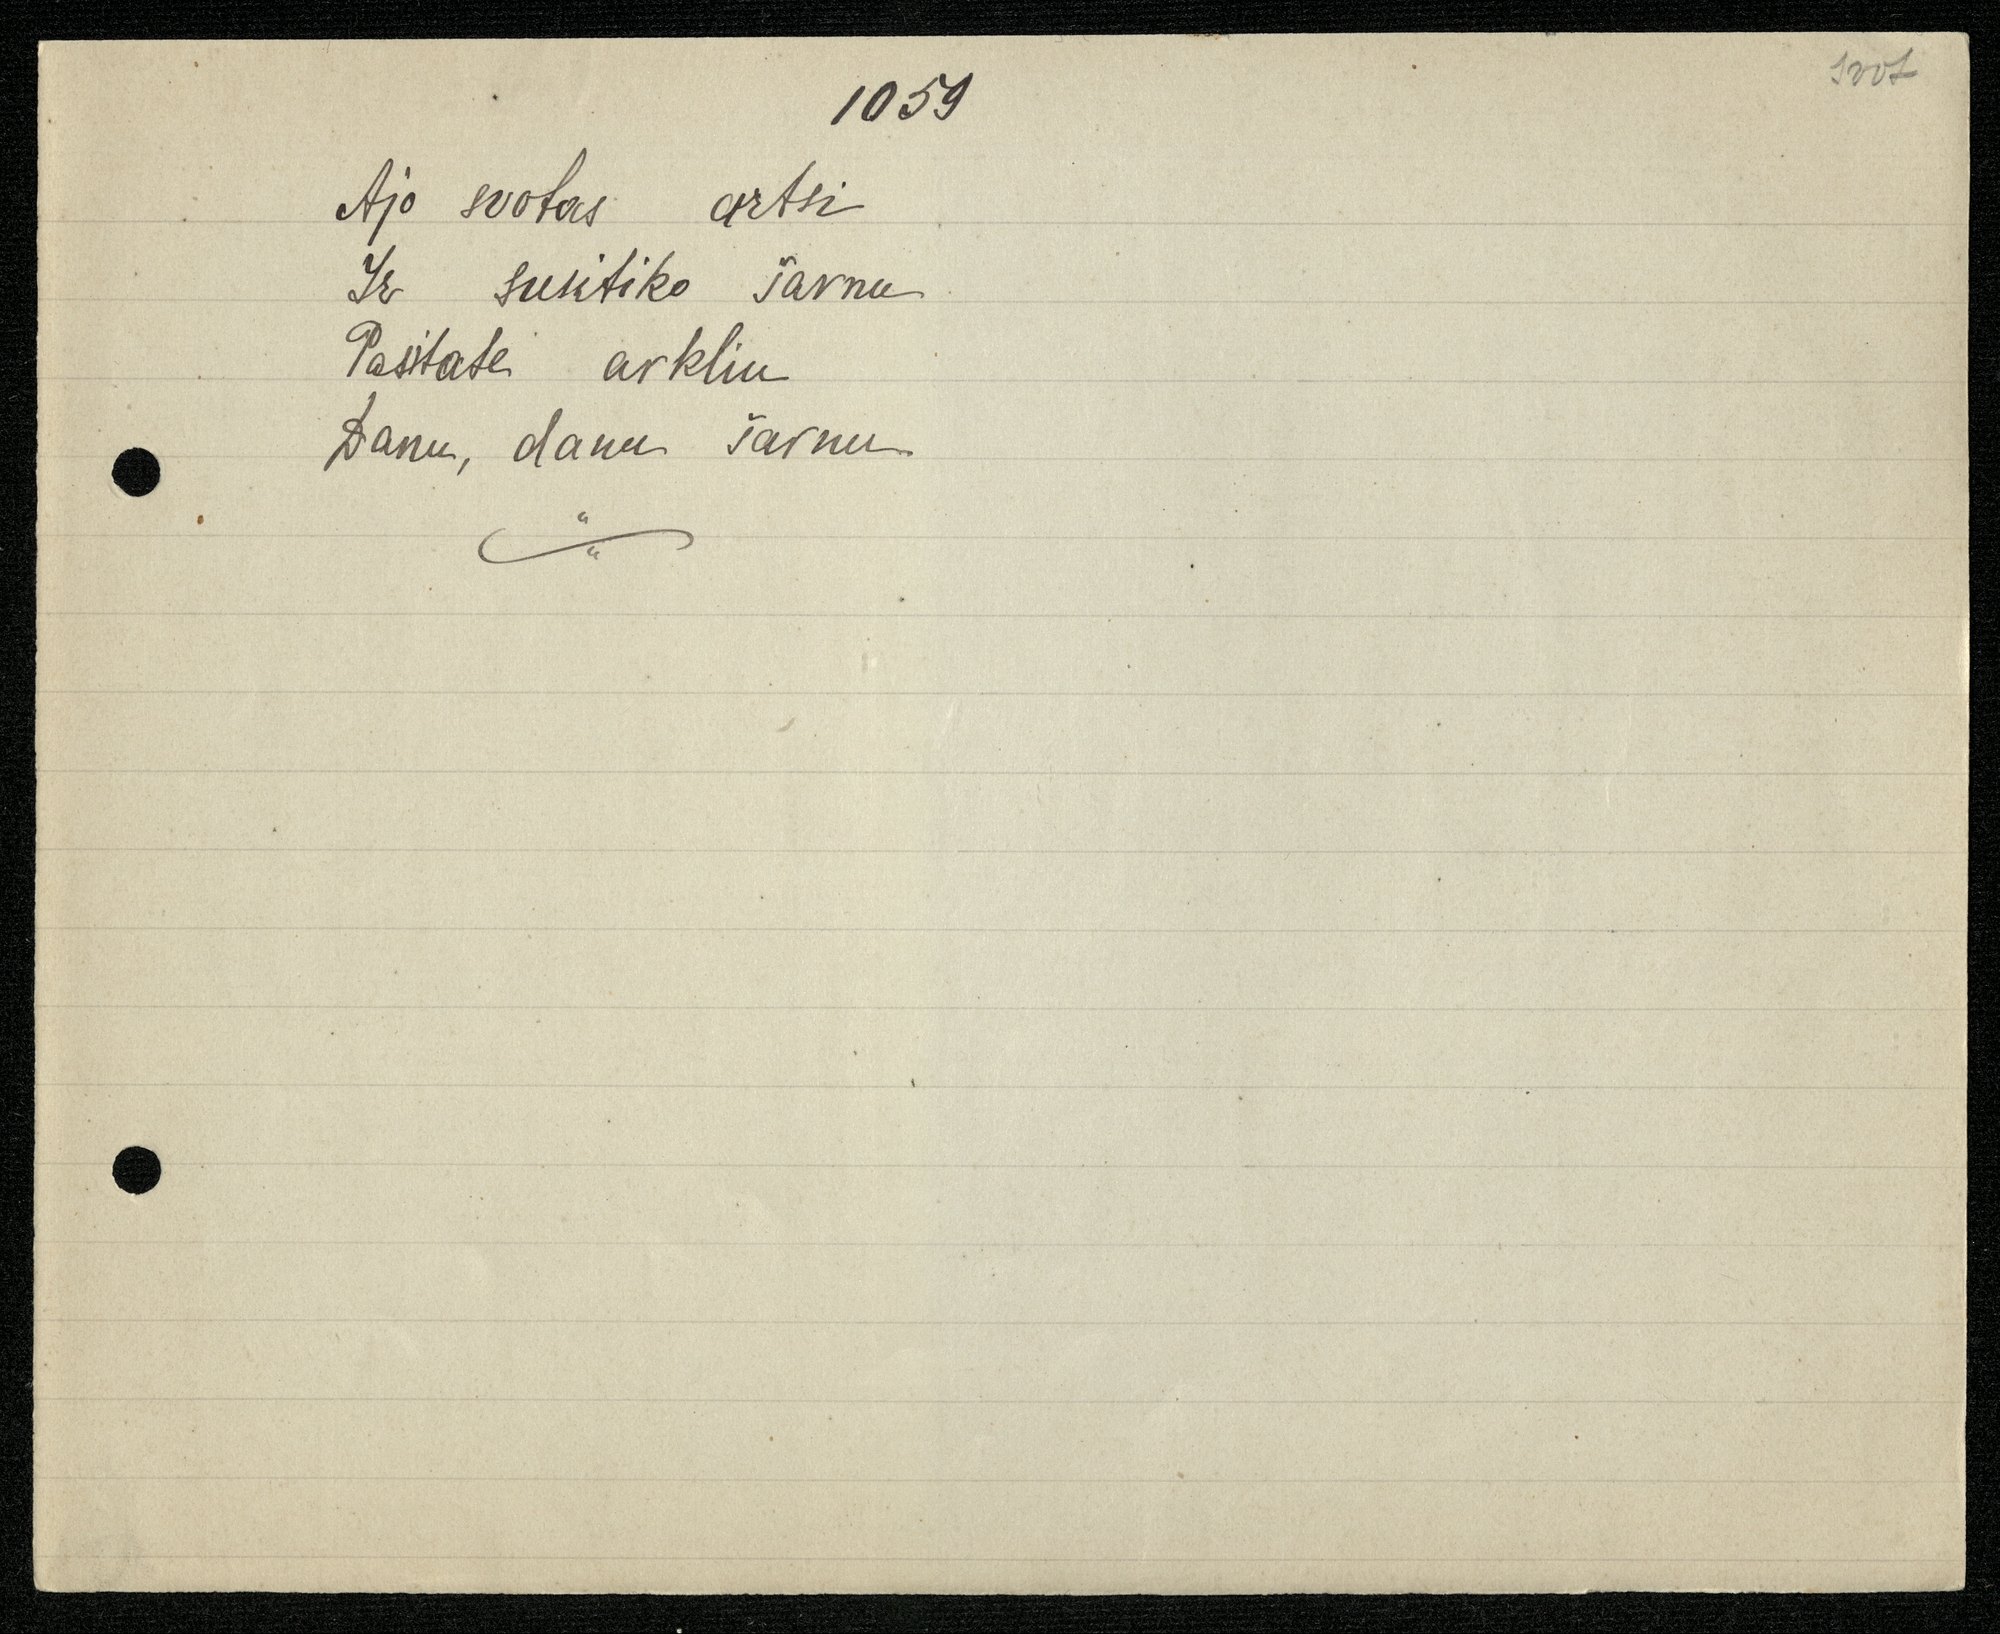 svot
1059
Ajo svotas artsi
Ir susitiko šarnu
Pasitate arkliu
Danu, danu šarnu